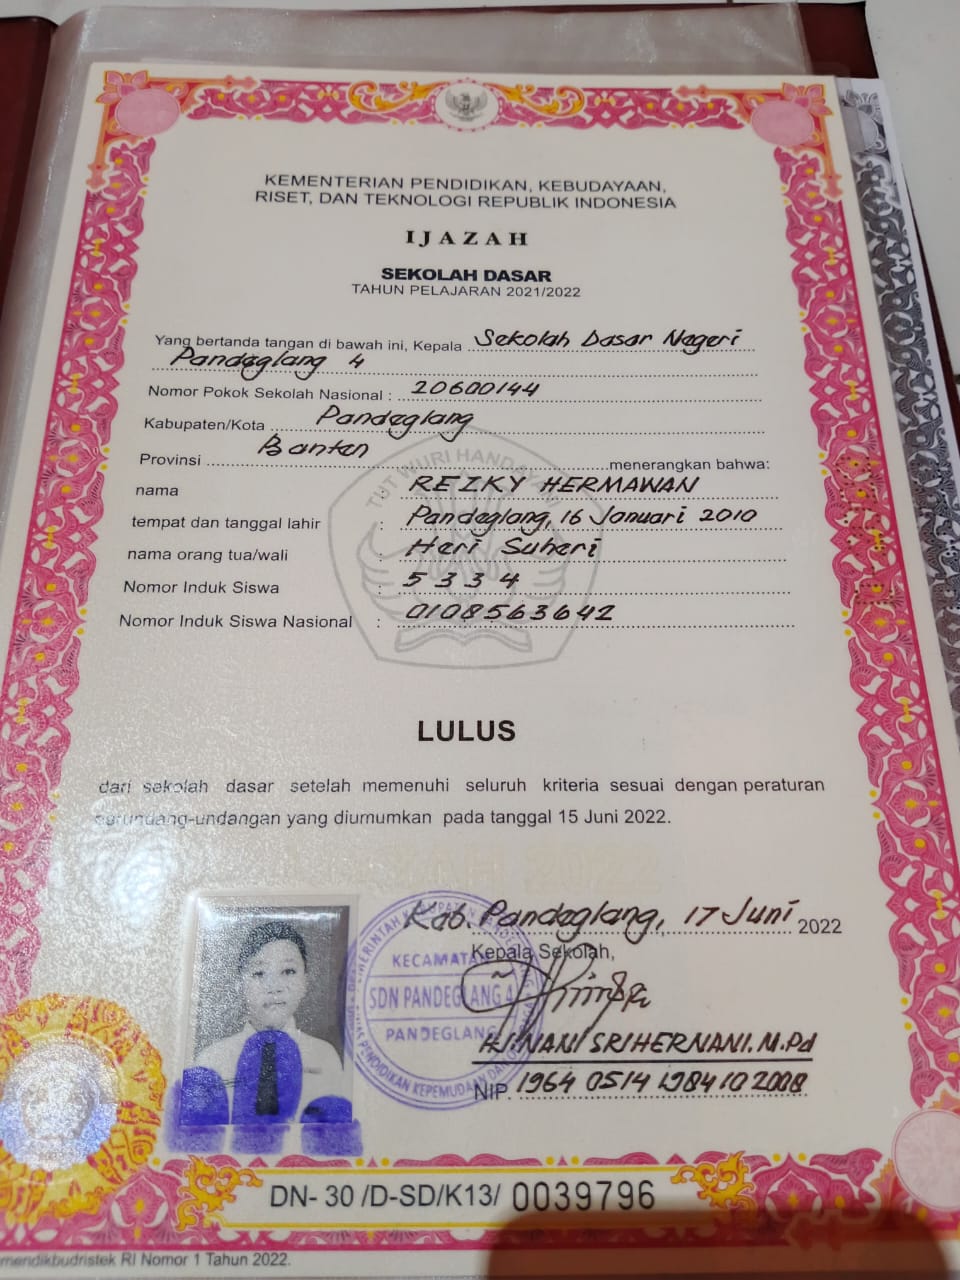 KEMENTERIAN PENDIDIKAN, KEBUDAYAAN,
RISET, DAN TEKNOLOGI REPUBLIK INDONESIA
IJAZAH
SEKOLAH DASAR
TAHUN PELAJARAN 2021/2022
Yang bertanda tangan di bawah ini, Kepala Sekolah Dasar Negeri
Pandeglang 4
Nomor Pokok Sekolah Nasional : 20600144
Kabupaten/Kota Pandeglang
Provinsi Banten menerangkan bahwa:
TUT WURI HANDAYANI
nama : REZKY HERMAWAN
tempat dan tanggal lahir : Pandeglang, 16 Januari 2010
nama orang tua/wali : Heri Suheri
Nomor Induk Siswa : 5334
Nomor Induk Siswa Nasional : 0108563642
LULUS
dari sekolah dasar setelah memenuhi seluruh kriteria sesuai dengan peraturan
perundang-undangan yang diumumkan pada tanggal 15 Juni 2022.
IJAZAH 2022
Kab. Pandeglang, 17 Juni 2022
Kepala Sekolah,
KECAMATAN
SDN PANDEGLANG 4
PANDEGLANG
SRIHERNANI. M.Pd
NIP. 1964 0514 198410 2008
DN- 30 /D-SD/K13/ 0039796
mendikbudristek RI Nomor 1 Tahun 2022.